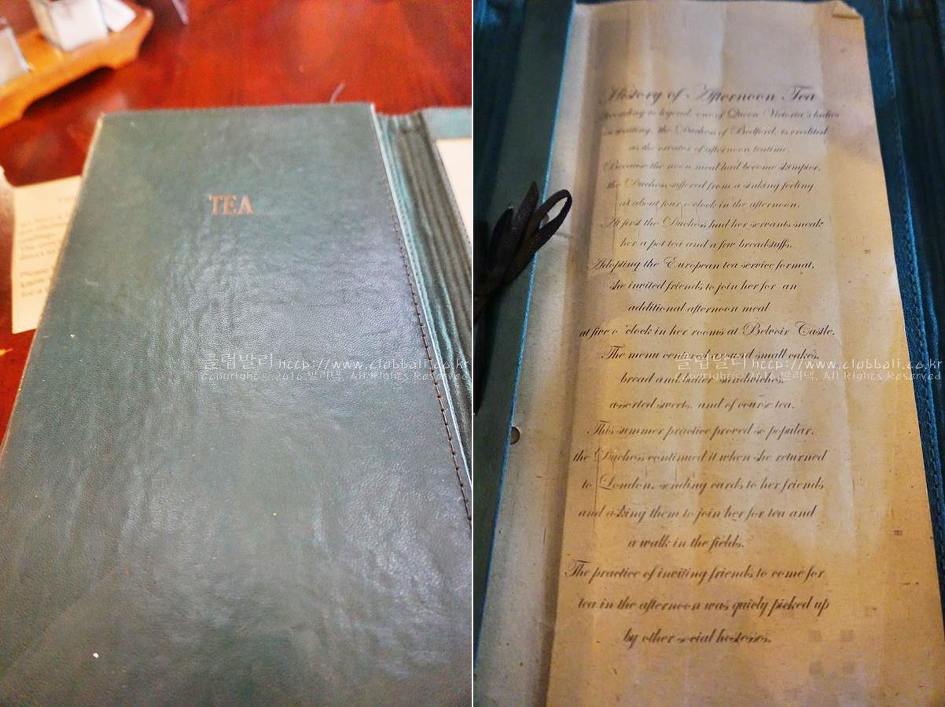 TEA
클럽발리 http://www.clubbali.co.kr
All Rights Reserved
History of Afternoon Tea
According to legend, one of Queen Victoria's ladies
in waiting, the Duchess of Bedford, is credited
as the creator of afternoon teatime.
Because the noon meal had become skimpier,
the Duchess suffered from a sinking feeling
at about four o'clock in the afternoon.
At first the Duchess had her servants sneak
her a pot tea and a few breadstuffs.
Adopting the European tea service format,
she invited friends to join her for an
additional afternoon meal
at five o 'clock in her rooms at Belvoir Castle.
The menu centered around small cakes,
클럽발리 http://www.clubbali.co.kr
All Rights Reserved
bread and butter sandwiches,
assorted sweets, and of course tea.
This summer practice proved so popular,
the Duchess continued it when she returned
to London, sending cards to her friends
and asking them to join her for tea and
a walk in the fields.
The practice of inviting friends to come for
tea in the afternoon was quicly picked up
by other social hostesses.